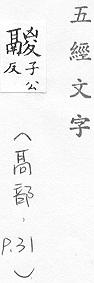 五經文字
鬷子公反
(鬲部, P.31)